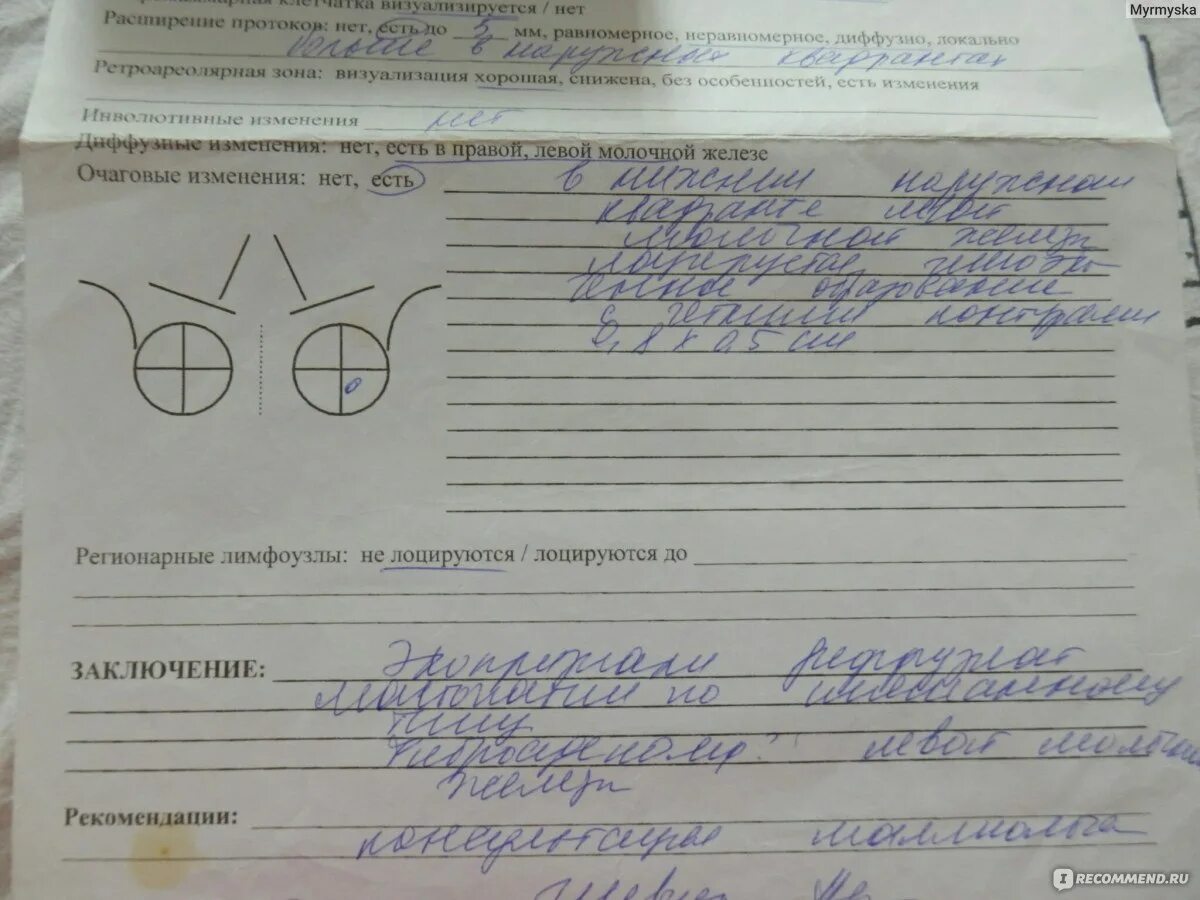 Myrmyska
клетчатка визуализируется / нет
Расширение протоков: нет, есть до 5 мм, равномерное, неравномерное, диффузно, локально
больше в наружных квадрантах
Ретроареолярная зона: визуализация хорошая, снижена, без особенностей, есть изменения
Инволютивные изменения нет
Диффузные изменения: нет, есть в правой, левой молочной железе
Очаговые изменения: нет, есть в нижнем наружном
квадранте левой
молочной железы
лоцируется гипоэхо
генное образование
с четкими контурами
0,8 х 0,5 см
Регионарные лимфоузлы: не лоцируются / лоцируются до
ЗАКЛЮЧЕНИЕ: Эхопризнаки диффузной
мастопатии по смешанному
типу
Фиброаденома? левой молочной
железы
Рекомендации:
консультация маммолога
IRECOMMEND.RU